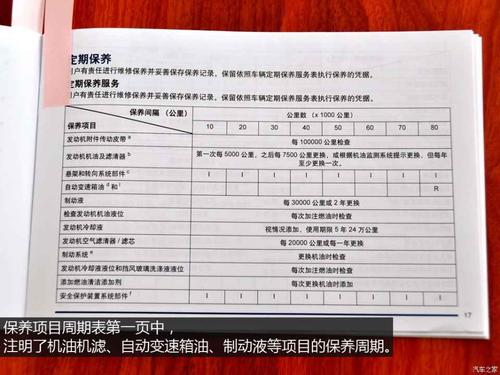 定期保养
用户有责任进行维修保养并妥善保存保养记录，保留依照车辆定期保养服务表执行保养的凭据。
定期保养服务
用户有责任进行维修保养并妥善保存保养记录，保留依照车辆定期保养服务表执行保养的凭据。
保养间隔（公里） 公里数（x 1000 公里）
保养项目 10 20 30 40 50 60 70 80
发动机附件传动皮带 a 每 100000 公里检查
发动机机油及滤清器 b 第一次每 5000 公里，之后每 7500 公里更换，或根据机油监测系统提示更换，但每年
至少更换一次。
悬架和转向系统部件 c I I I I I I I I
自动变速箱油 d 和 l R
制动液 每 30000 公里或 2 年更换
检查发动机机油液位 每次加注燃油时检查
发动机冷却液 视情况添加，使用期限 5 年 24 万公里
发动机空气滤清器 / 滤芯 每 20000 公里或每一年更换
制动系统 e 更换机油时检查
发动机冷却液液位和挡风玻璃洗涤液液位 每次加注燃油时检查
添加燃油清洁添加剂 每次更换机油时添加
安全保护装置系统部件 f I I I I I I I I
17
保养项目周期表第一页中，
注明了机油机滤、自动变速箱油、制动液等项目的保养周期。
汽车之家